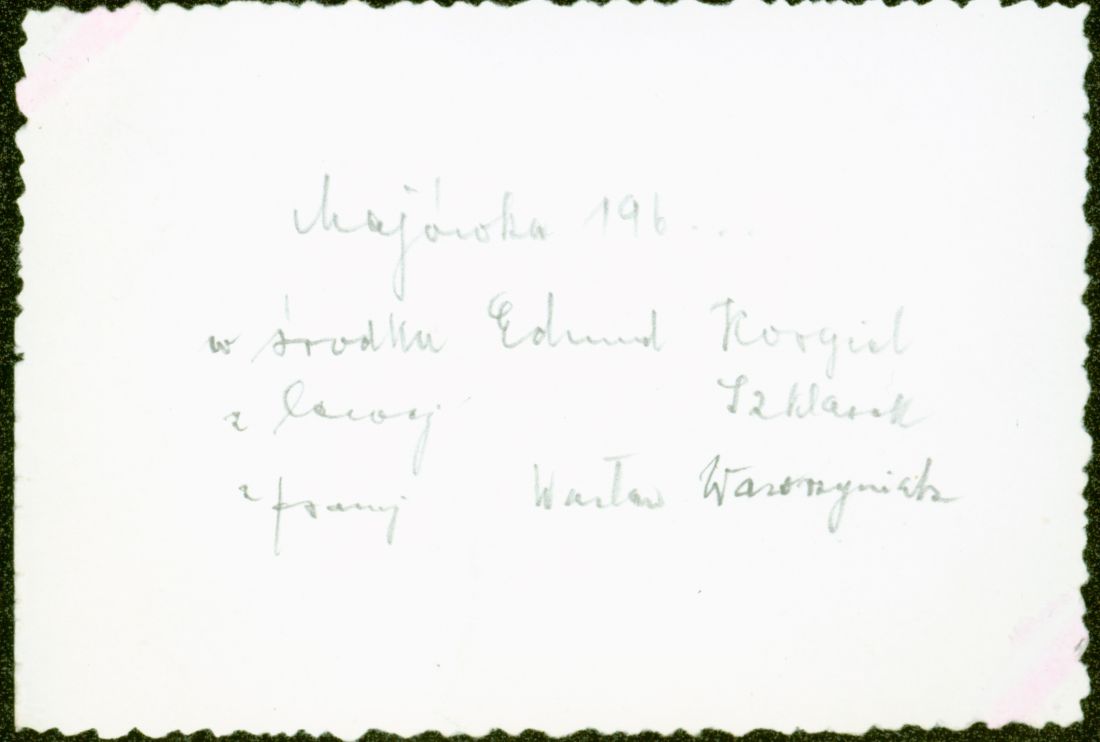 Majówka 196...
w środku Edmund Korgiel
z lewej Szklarek
z prawej Wacław Wawrzyniak